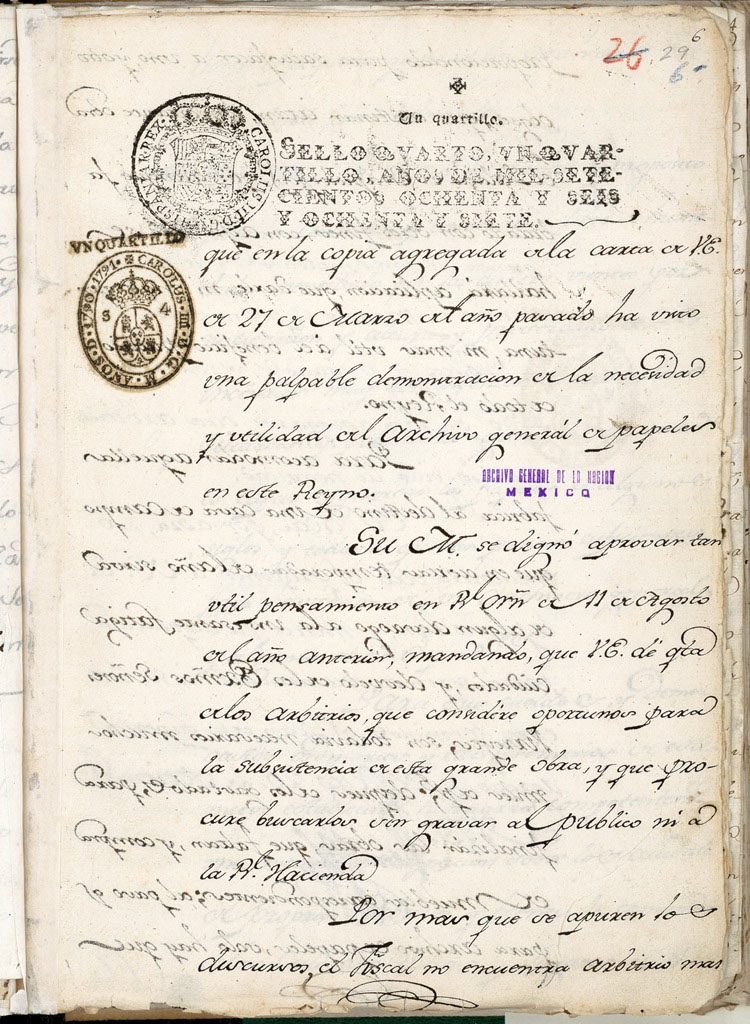 26 . 29 6
6
Un quartillo.
SELLO QVARTO, VN QVAR-
TILLO, AÑOS DE MIL SETE-
CIENTOS OCHENTA Y SEIS
Y OCHENTA Y SIETE.
CAROLUS III D G HISPANIAR REX
VN QUARTILLO
CAROLUS IIII D. G. AÑOS D. 1790. 1791.
S 4
que en la copia agregada de la carta de V.E.
de 27 de Marzo del año pasado ha visto
una palpable demonstracion de la necesidad
y utilidad del Archivo generál de papeles
en este Reyno.
ARCHIVO GENERAL DE LA NACION
MEXICO
Su M. se dignó aprovar tan
util pensamiento en Rl. Orñ de 11 de Agosto
del año anterior, mandando, que V.E. dé qta
de los arbitrios, que considere oportunos para
la subsistencia de esta grande obra, y que pro-
cure buscarlos sin gravar al publico ni a
la Rl. Hacienda
Por mas que se apuren los
discursos, el Fiscal no encuentra arbitrio mas